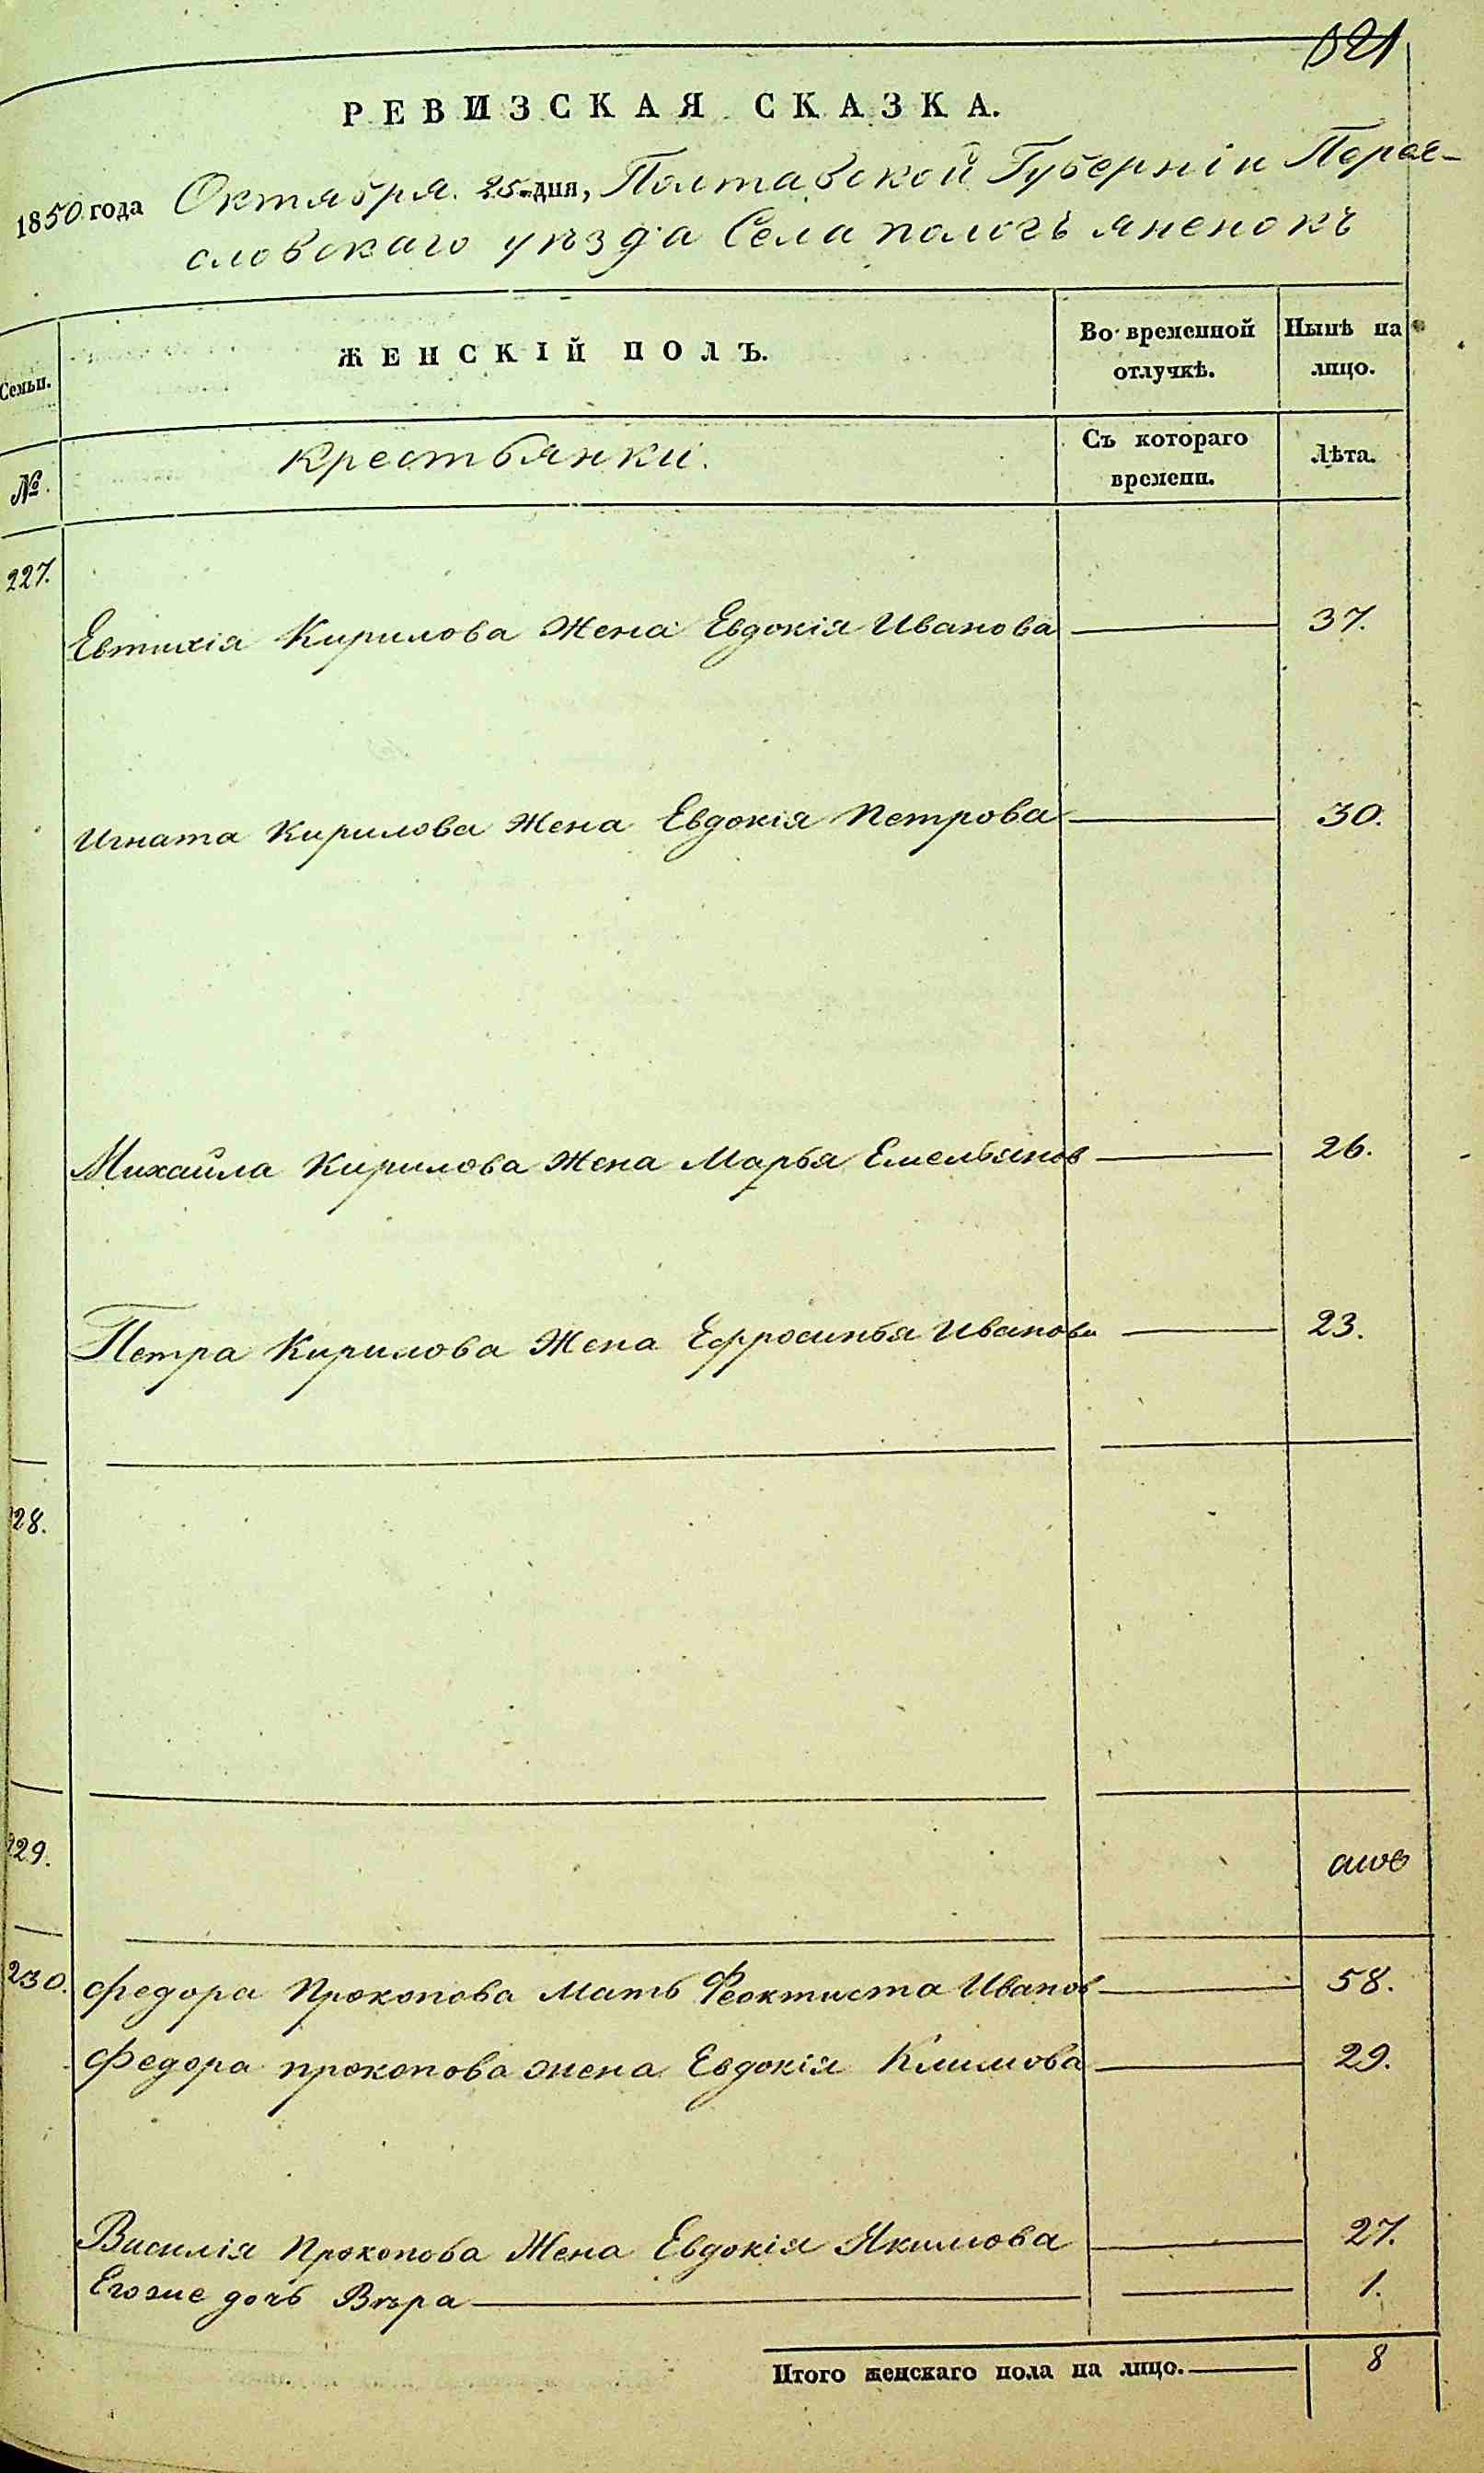 321
РЕВИЗСКАЯ СКАЗКА.
1850 года Октября 25 дня, Полтавской Губерніи Переяс-
словскаго уѣзда Села
Семьи.
ЖЕНСКІЙ ПОЛЪ.
Во временной отлучкѣ.
Нынѣ на лицо.
№
Крестьянки.
Съ котораго времени.
Лѣта.
227.
Евтихія Кирилова Жена Евдокія Иванова 37.
Игната Кирилова Жена Евдокія Петрова 30.
Михайла Кирилова Жена Марья Емельянов 26.
Петра Кирилова Жена Ефросинья Иванова 23.
28.
29.
230. Федора Прокопова Мать Феоктиста Иванов 58.
Федора прокопова жена Евдокія Климова 29.
Василія Прокопова Жена Евдокія Якимова 27.
Его же дочь Вѣра 1.
Итого женскаго пола на лицо. 8